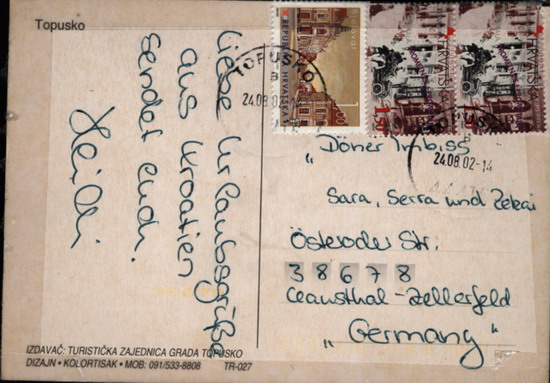 Topusko
Liebe Urlaubsgrüße
aus Kroatien
sendet euch.
Heidi
REPUBLIKA HRVATSKA
HRVATSKA
TOPUSKO
B
24.08.02-14
24.08.02-14
„Döner Imbiss
Sara, Serra und Zekai
Österoder Str.
38678
Clausthal-Zellerfeld
„Germany“
IZDAVAČ: TURISTIČKA ZAJEDNICA GRADA TOPUSKO
DIZAJN • KOLORTISAK • MOB: 091/533-8808 TR-027